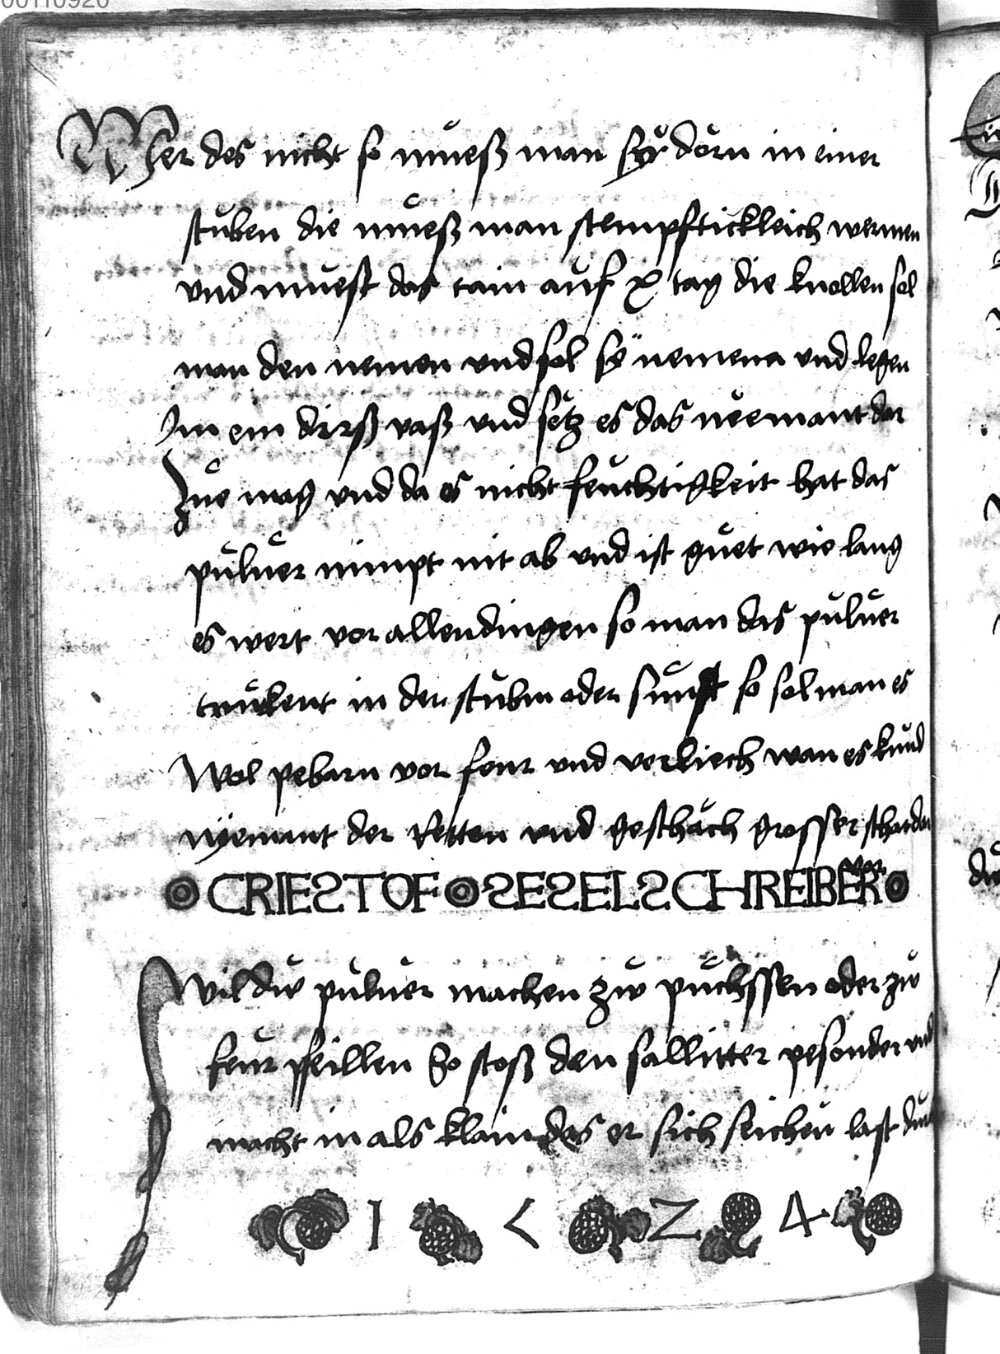 00110920
Wer des nicht so mueß man sy dorn in einer
stuben die mueß man stempftickleich wermen
vnd muest das tain auf x tag die knollen sol
man den nemen vnd sol sÿ nemena vnd legen
Im ein dirß vaß vnd setz es das neemant dar
zue mag vnd da es nicht feuchtigkeit hat das
puluer nimpt nit ab vnd ist guet wie lang
es wert vor allen dingen so man das puluer
trukent in der stubm oder sunst so sol man es
Wol pebarn vor feur vnd verkiech wan es kund
nyemant der Retten vnd geschach grosser schaden
CRIESTOF SESELSCHREIBER
Wil dw puluer machen zw puchssen oder zw
feur pfeillen So stoß den sallitter pesonder vnd
macht in als klain das er sich seichen last
1 < Z 4